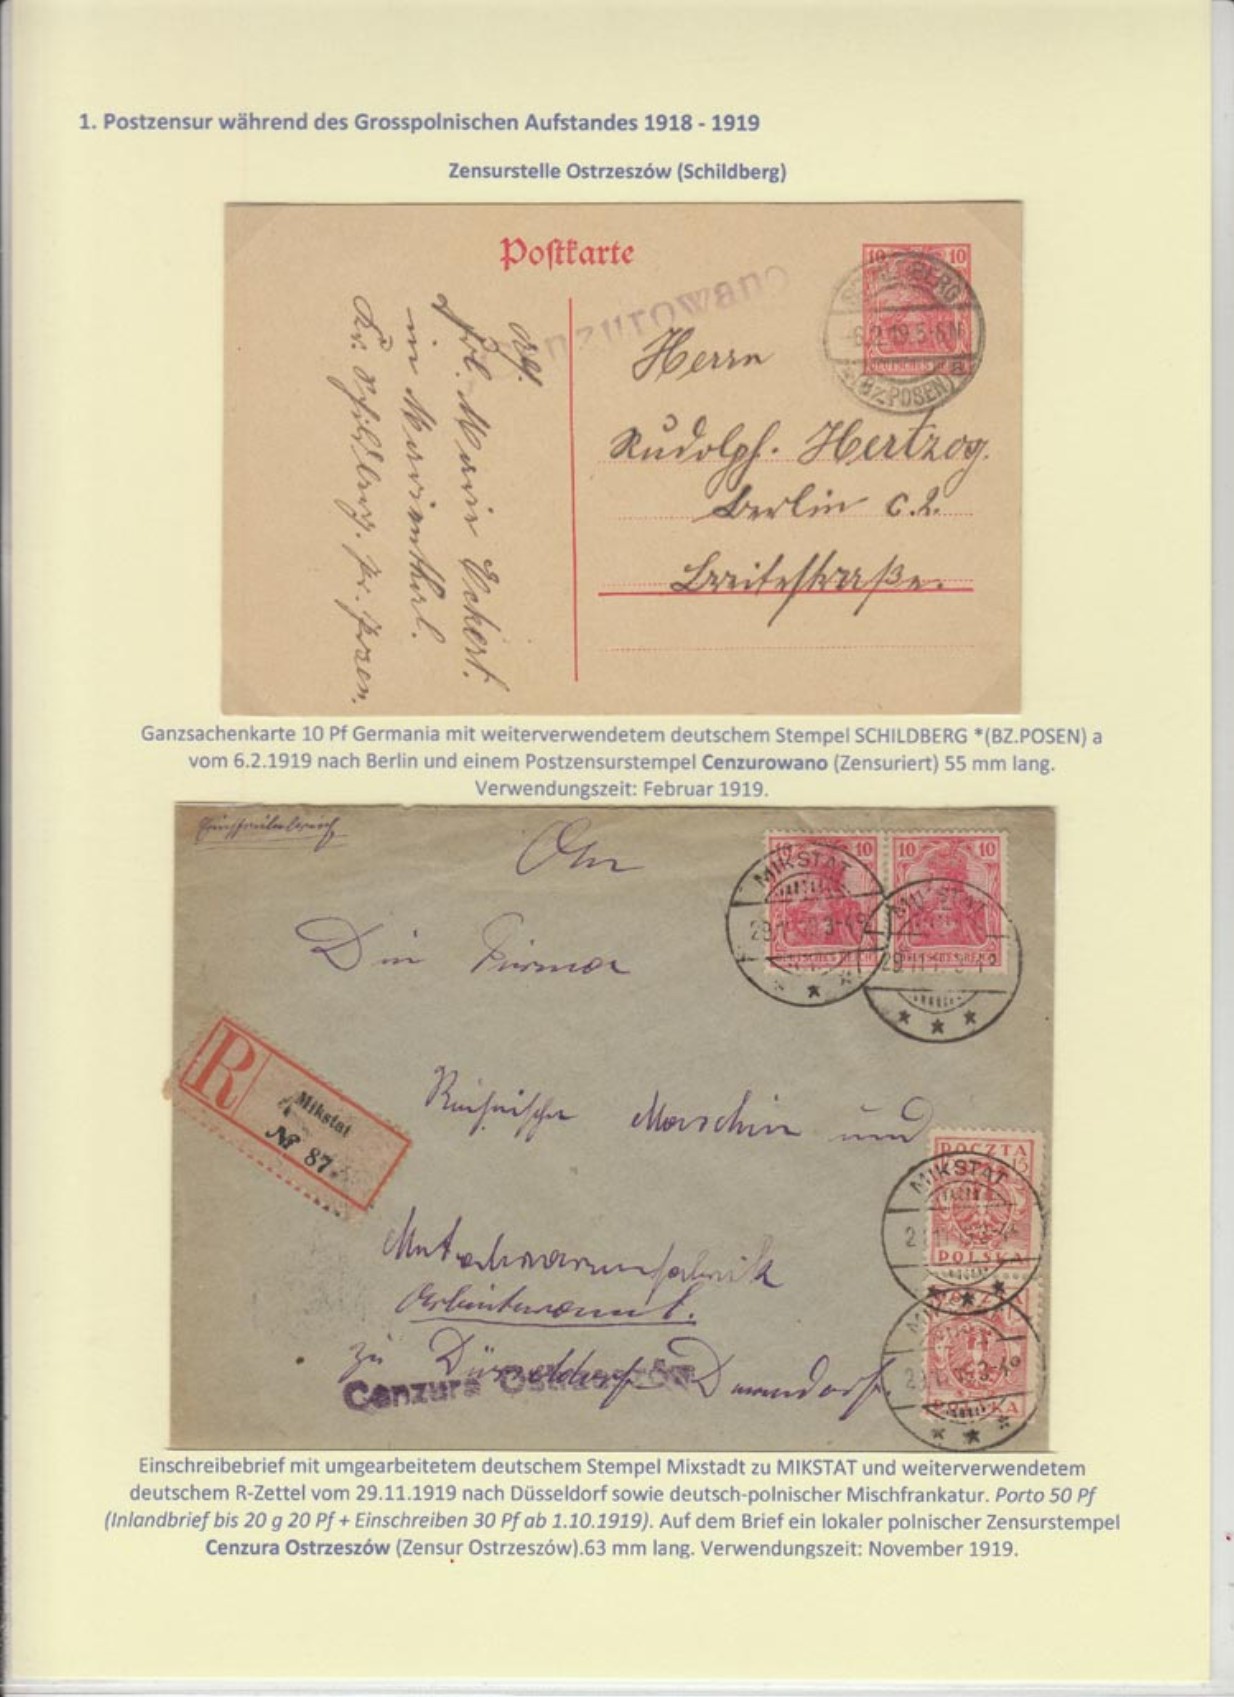 1. Postzensur während des Grosspolnischen Aufstandes 1918 - 1919
Zensurstelle Ostrzeszów (Schildberg)
Postkarte
Cenzurowano
10 10
SCHILDBERG
-6.2.19.5-6N
* (BZ.POSEN) a
DEUTSCHES REICH
Abs.
Frl. Marie Eckert.
in Marienthal.
Kr. Schildberg. Pr. Posen.
Herrn
Rudolph. Hertzog.
Berlin C.2.
Breitestraße.
Ganzsachenkarte 10 Pf Germania mit weiterverwendetem deutschem Stempel SCHILDBERG *(BZ.POSEN) a
vom 6.2.1919 nach Berlin und einem Postzensurstempel Cenzurowano (Zensuriert) 55 mm lang.
Verwendungszeit: Februar 1919.
An
10 10 10
MIKSTAT
MIKSTAT
DEUTSCHES REICH
DEUTSCHES REICH
Die Firma
R
Mikstat
№ 87
Rheinische Maschin und
Metallwarenfabrik
zu Düsseldorf Derendorf.
Cenzura Ostrzeszów
POCZTA
15
MIKSTAT
POLSKA
POCZTA
MIKSTAT
POLSKA
Einschreibebrief mit umgearbeitetem deutschem Stempel Mixstadt zu MIKSTAT und weiterverwendetem
deutschem R-Zettel vom 29.11.1919 nach Düsseldorf sowie deutsch-polnischer Mischfrankatur. Porto 50 Pf
(Inlandbrief bis 20 g 20 Pf + Einschreiben 30 Pf ab 1.10.1919). Auf dem Brief ein lokaler polnischer Zensurstempel
Cenzura Ostrzeszów (Zensur Ostrzeszów).63 mm lang. Verwendungszeit: November 1919.